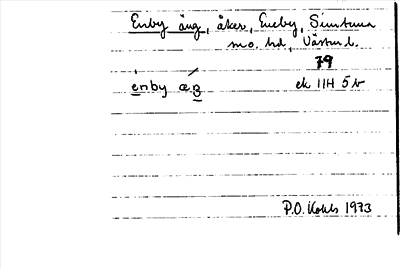 Enby äng, åker, Eneby, Simtuna
sn o. hd, Västml.
79
enby æŋ ek 11H 5b
P.O. Kohls 1973